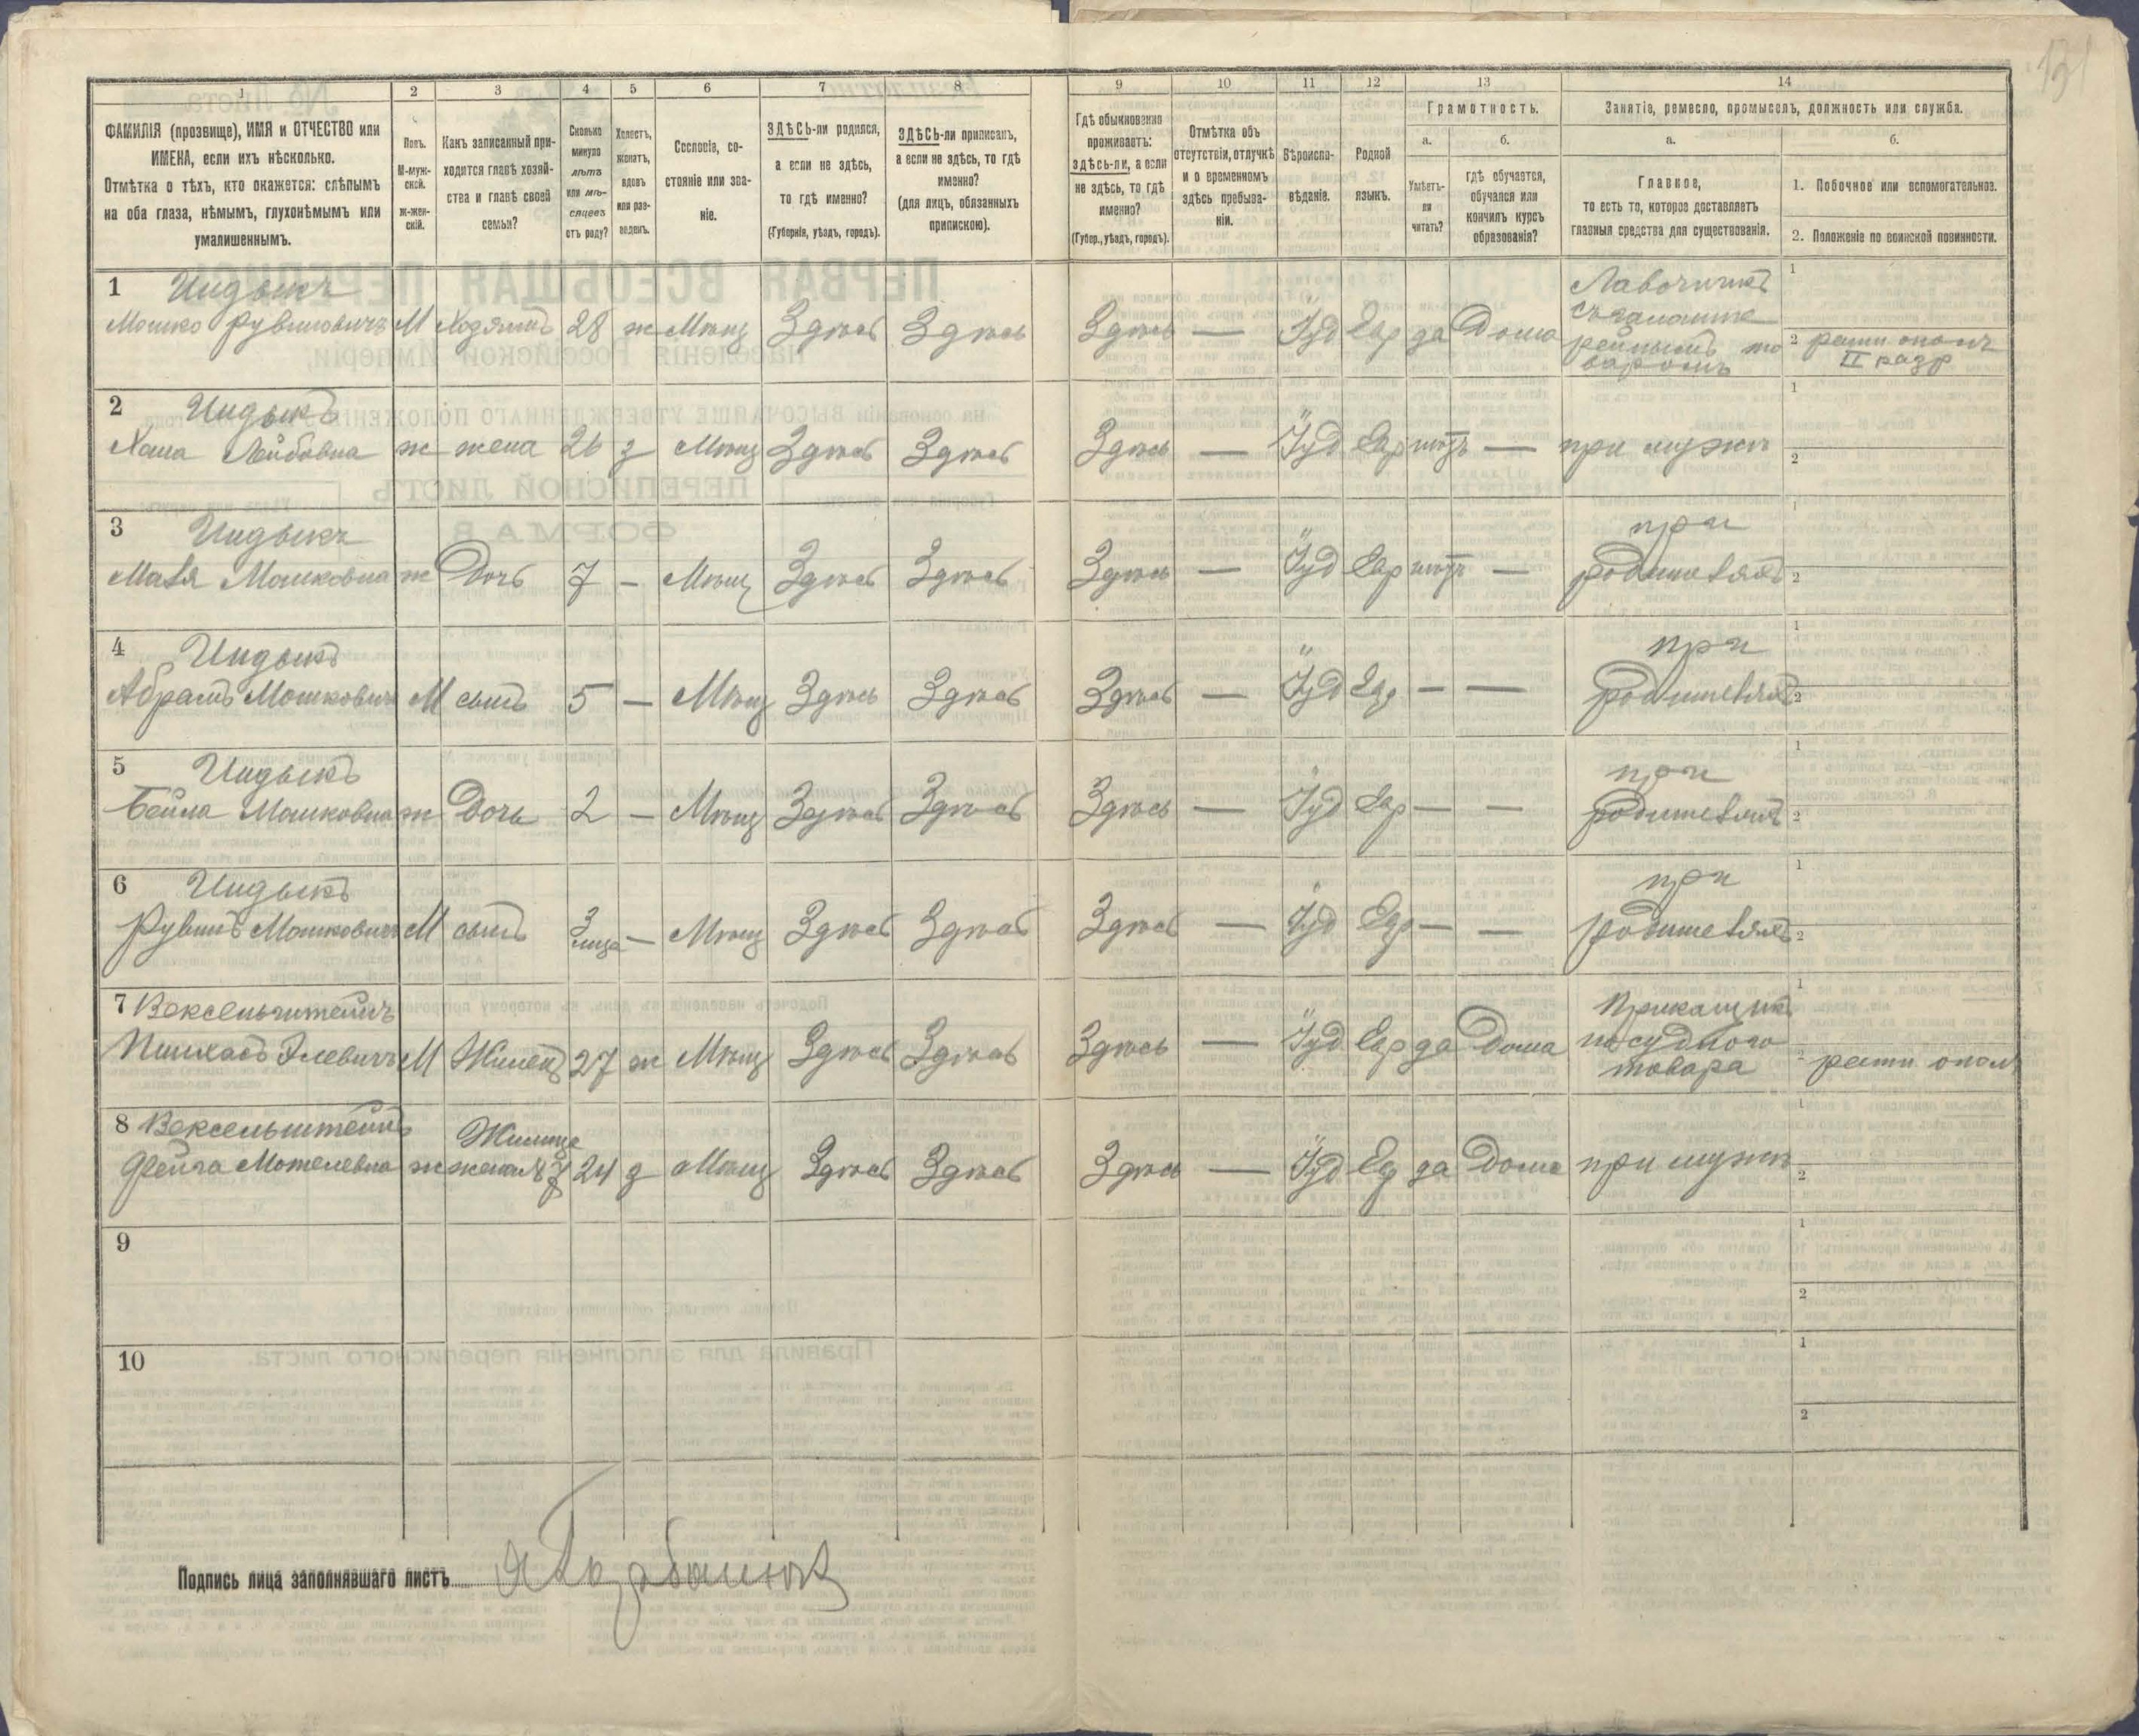 131
1 2 3 4 5 6 7 8 9 10 11 12 13 14
ФАМИЛІЯ (прозвище), ИМЯ и ОТЧЕСТВО или
ИМЕНА, если ихъ нѣсколько.
Отмѣтка о тѣхъ, кто окажется: слѣпымъ
на оба глаза, нѣмымъ, глухонѣмымъ или
умалишеннымъ.
Полъ.
М-муж-
ской.
Ж-жен-
скій.
Какъ записанный при-
ходится главѣ хозяй-
ства и главѣ своей
семьи?
Сколько
минуло
лѣтъ
или мѣ-
сяцевъ
отъ роду?
Холостъ,
женатъ,
вдовъ
или раз-
веденъ.
Сословіе, со-
стояніе или зва-
ніе.
ЗДѢСЬ-ли родился,
а если не здѣсь,
то гдѣ именно?
(Губернія, уѣздъ, городъ).
ЗДѢСЬ-ли приписанъ,
а если не здѣсь, то гдѣ
именно?
(для лицъ, обязанныхъ
припискою).
Гдѣ обыкновенно
проживаетъ:
здѣсь-ли, а если
не здѣсь, то гдѣ
именно?
(Губер., уѣздъ, городъ).
Отмѣтка объ
отсутствіи, отлучкѣ
и о временномъ
здѣсь пребыва-
ніи.
Вѣроиспо-
вѣданіе.
Родной
языкъ.
Грамотность.
а. б.
Умѣетъ-
ли
читать?
гдѣ обучается,
обучался или
кончилъ курсъ
образованія?
Занятіе, ремесло, промыселъ, должность или служба.
а. б.
Главное,
то есть то, которое доставляетъ
главныя средства для существованія.
1. Побочное или вспомогательное.
2. Положеніе по воинской повинности.
1 Индыкъ
Мошко Рувиновичъ М Хозяинъ 28 ж Мѣщ Здѣсь Здѣсь Здѣсь — Іуд Евр да Дома
Лавочникъ
съ галанте
рейнымъ то
варомъ
1
2 ратн ополч
II разр
2 Индыкъ
Хана Лейбовна ж жена 26 з Мѣщ Здѣсь Здѣсь Здѣсь — Іуд Евр нѣтъ — при мужѣ
1
2
3 Индыкъ
Маля Мошковна ж Дочь 7 — Мѣщ Здѣсь Здѣсь Здѣсь — Іуд Евр нѣтъ —
при
родителяхъ
1
2
4 Индыкъ
Абрамъ Мошковичъ М сынъ 5 — Мѣщ Здѣсь Здѣсь Здѣсь — Іуд Евр — —
при
родителяхъ
1
2
5 Индыкъ
Бейла Мошковна ж Дочь 2 — Мѣщ Здѣсь Здѣсь Здѣсь — Іуд Евр — —
при
родителяхъ
1
2
6 Индыкъ
Рувинъ Мошковичъ М сынъ 3 — Мѣщ Здѣсь Здѣсь Здѣсь — Іуд Евр — —
при
родителяхъ
1
2
7 Вексельштейнъ
Пинхасъ Элевичъ М Жилецъ 27 ж Мѣщ Здѣсь Здѣсь Здѣсь — Іуд Евр да Дома
Прикащикъ
посуднаго
товара
1
2 ратн опол
8 Вексельштейнъ
Фейга Мотелевна ж Жилица
жена № 7 24 з Мѣщ Здѣсь Здѣсь Здѣсь — Іуд Евр да Дома при мужѣ
1
2
9
1
2
10
1
2
Подпись лица заполнявшаго листъ